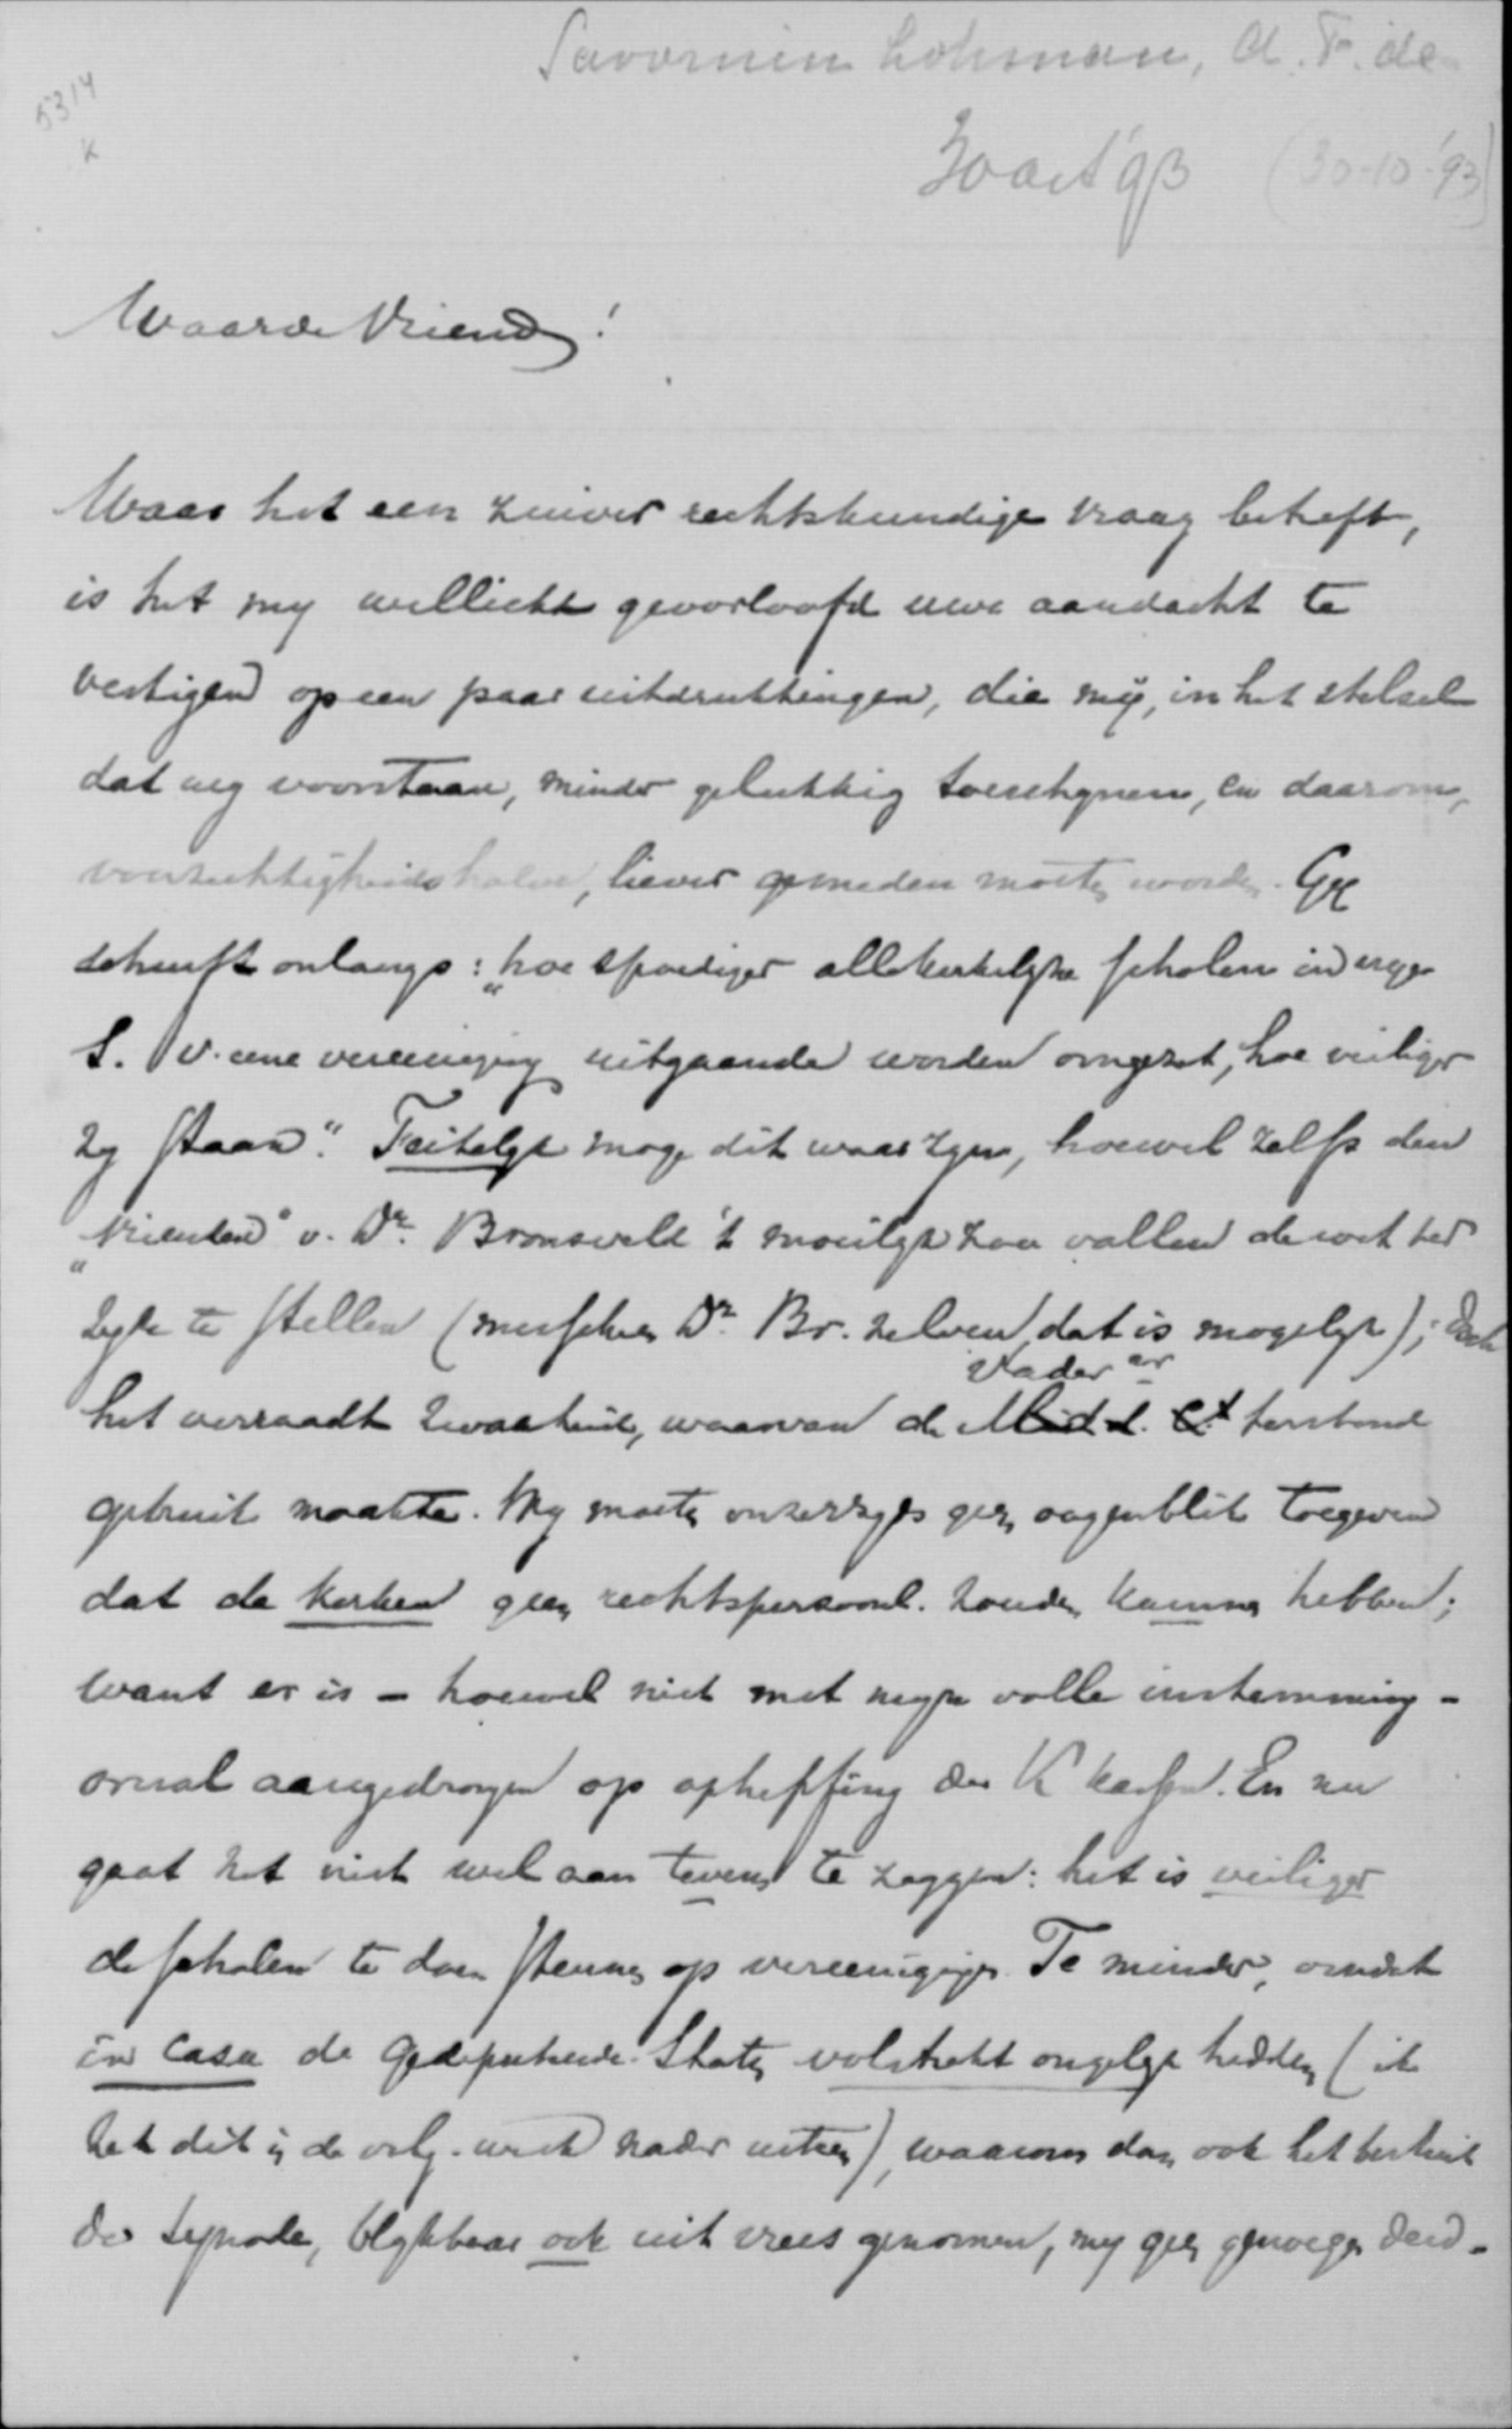 Savornin Lohman, A.F. de
5314
K
30 Oct '93 (30-10-'93)
Waarde Vriend!
Waar het een zuiver rechtskundige vraag betreft,
is het my wellicht geoorloofd uwe aandacht te
vestigen op een paar uitdrukkingen, die mij, in het stelsel
dat wy voorstaan, minder gelukkig toeschynen, en daarom,
voorzichtigheidshalve, liever gemeden moeten worden. Gy
schreeft onlangs: „hoe spoediger alle kerkelyke scholen in
S. v. eene vereeniging uitgaande worden omgezet, hoe veiliger
zy staan." Feitelyk moge dit waar zyn, hoewel zelfs den
„vrienden" v. Dr. Bronsveld 't moeilyk zou vallen de wet ter
zyde te stellen (misschien Dr. Br. zelven, dat is mogelyk); doch
Vader er
het verraadt zwakheid, waarvan de Midd. Ct terstond
gebruik maakte. Wy moeten onzerzyds geen oogenblik toegeven
dat de kerken geen rechtspersoonl. zouden kunnen hebben;
want er is – hoewel niet met myn volle instemming –
overal aangedrongen op opheffing der K kassen. En nu
gaat het niet wel aan tevens te zeggen: het is veiliger
de scholen te doen steunen op vereenigingen. Te minder, omdat
in casu de Gedeputeerde Staten volstrekt ongelyk hadden (ik
zet dit in de volg. week nader uiteen), waarom dan ook het besluit
der Synode, blykbaar ook uit vrees genomen, my geen genoegen deed.